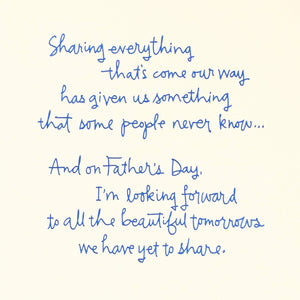 Sharing everything
that's come our way
has given us something
that some people never know...
And on Father's Day,
I'm looking forward
to all the beautiful tomorrows
we have yet to share.